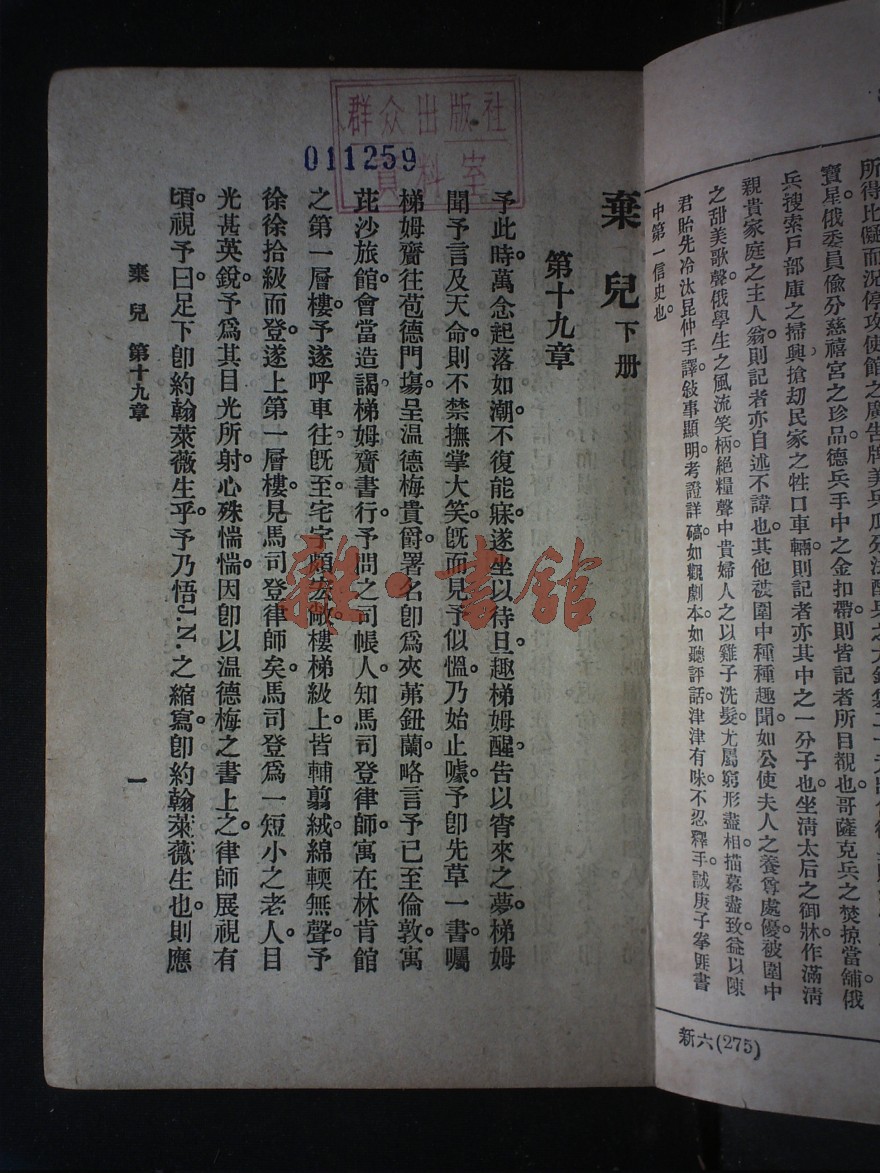 所得比儗而況停攻使館之廣告牌美兵瓜分法
寶星俄委員偸分慈禧宮之珍品德兵手中之金扣帶則皆記者所目覩也哥薩克兵之焚掠當舖俄
兵搜索戶部庫之掃興搶刧民家之牲口車輛則記者亦其中之一分子也坐淸太后之御牀作滿淸
親貴家庭之主人翁則記者亦自述不諱也其他被圍中種種趣聞如公使夫人之養尊處優被圍中
之甜美歌聲俄學生之風流笑柄絕糧聲中貴婦人之以雞子洗髮尤屬窮形盡相描摹盡致益以陳
君貽先冷汰昆仲手譯敍事顯明考證詳碻如觀劇本如聽評話津津有味不忍釋手誠庚子拳匪書
中第一信史也
新六(275)
群众出版社
資料室
011259
棄兒下册
第十九章
予此時萬念起落如潮。不復能寐。遂坐以待旦。趣梯姆醒。吿以宵來之夢。梯姆
聞予言及天命。則不禁撫掌大笑。旣而見予似慍。乃始止噱。予卽先草一書。囑
梯姆齎往苞德門塲。呈温德梅貴爵。署名卽爲夾茀鈕蘭。略言予已至倫敦。寓
茈沙旅館。會當造謁。梯姆齎書行。予問之司帳人。知馬司登律師。寓在林肯館
之第一層樓。予遂呼車往。旣至。宅宇頗宏敞。樓梯級上。皆輔翦絨。綿輭無聲。予
徐徐拾級而登。遂上第一層樓。見馬司登律師矣。馬司登爲一短小之老人。目
光甚英銳。予爲其目光所射。心殊惴惴。因卽以温德梅之書上之。律師展視有
頃。視予曰。足下卽約翰萊薇生乎。予乃悟J.N.之縮寫。卽約翰萊薇生也。則應
棄兒 第十九章
一
雜·書館